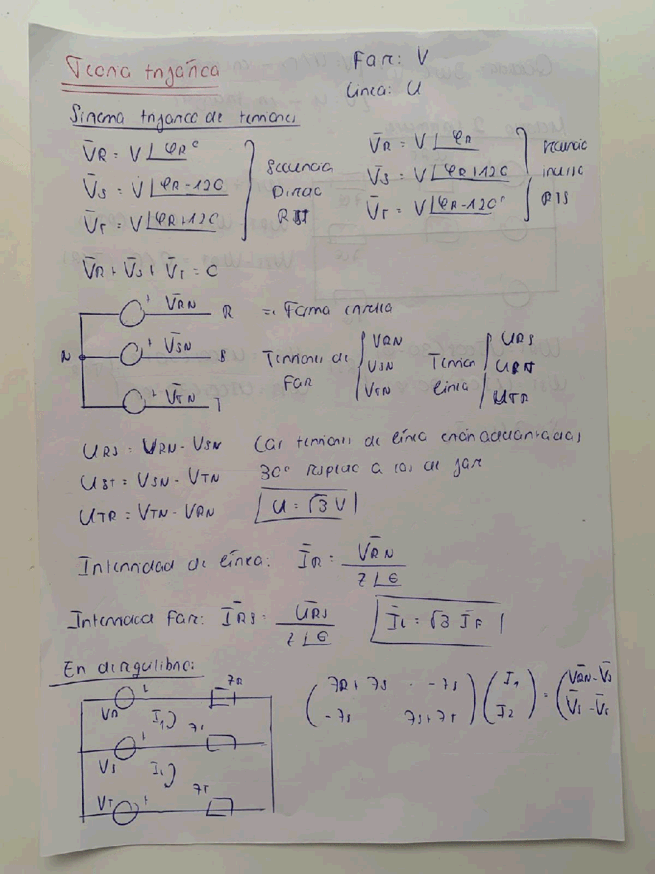 Teoria trifásica
Fase: V
Línea: U
Sistema trifásico de tensiones
V̄R = V∠φR°
V̄S = V∠φR-120
V̄T = V∠φR+120
Secuencia
Directa
RST
V̄R = V∠φR
V̄S = V∠φR+120
V̄T = V∠φR-120°
Secuencia
inversa
RTS
V̄R + V̄S + V̄T = 0
V̄RN R
N V̄SN S
V̄TN T
=> Forma estrella
Tensiones de
Fase
VRN
VSN
VTN
Tension
línea
URS
URN
UTR
URS = VRN - VSN
UST = VSN - VTN
UTR = VTN - VRN
Las tensiones de línea están adelantadas
30° respecto a las de fase
U = √3 V
Intensidad de línea: ĪR = V̄RN / Z∠φ
Intensidad Fase: ĪRS = ŪRS / Z∠φ
ĪL = √3 ĪF
En desequilibrio:
VR I1 ZR
VS I2 ZS
VT ZT
ZR + ZS - ZS
-ZS ZS + ZT
I1
I2
=
V̄RN - V̄S
V̄S - V̄T